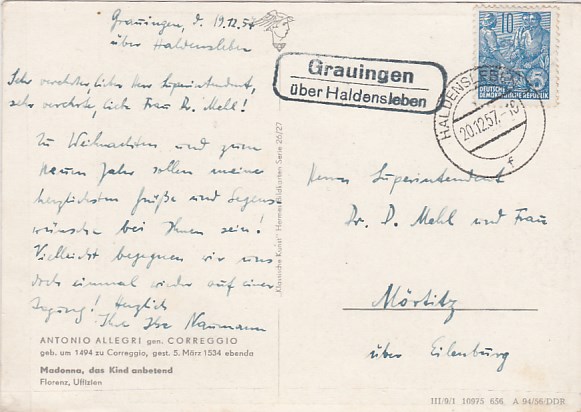 Grauingen, d. 19.12.57
über Haldensleben
Sehr verehrter, lieber Herr Superintendent,
sehr verehrte, liebe Frau Dr. Mehl!
Zu Weihnachten und zum
neuen Jahr sollen meine
herzlichsten Grüße und Segens-
wünsche bei Ihnen sein!
Vielleicht begegnen wir uns
doch einmal wieder auf einer
Tagung! Herzlich
Ihre Naumann
ANTONIO ALLEGRI gen. CORREGGIO
geb. um 1494 zu Correggio, gest. 5. März 1534 ebenda
Madonna, das Kind anbetend
Florenz, Uffizien
„Klassische Kunst" Hermes-Bildkarten Serie 26/27
Grauingen
über Haldensleben
HALDENSLEBEN
20.12.57.-18
f
10
5
DEUTSCHE
DEMOKRATISCHE REPUBLIK
Herrn Superintendent
Dr. D. Mehl und Frau
Mörtitz
über Eilenburg
III/9/1 10975 656 A 94/56/DDR